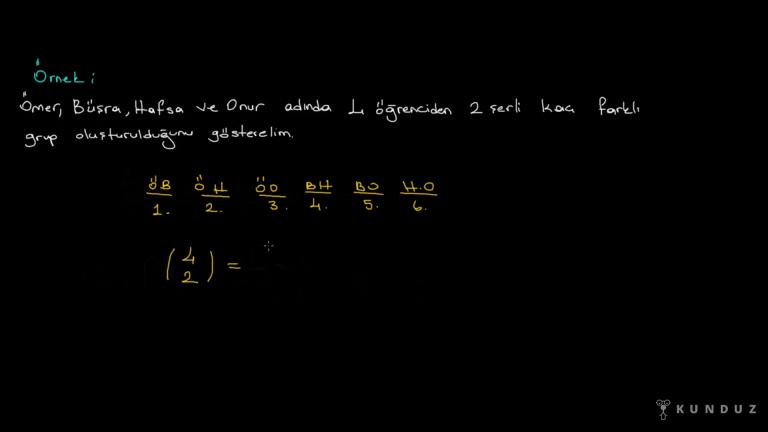 Örnek:
Ömer, Büşra, Hafsa ve Onur adında 4 öğrenciden 2 şerli kaç farklı
grup oluşturulduğunu gösterelim.
ÖB ÖH ÖO BH BO H.O
1. 2. 3. 4. 5. 6.
(4
2) =
KUNDUZ